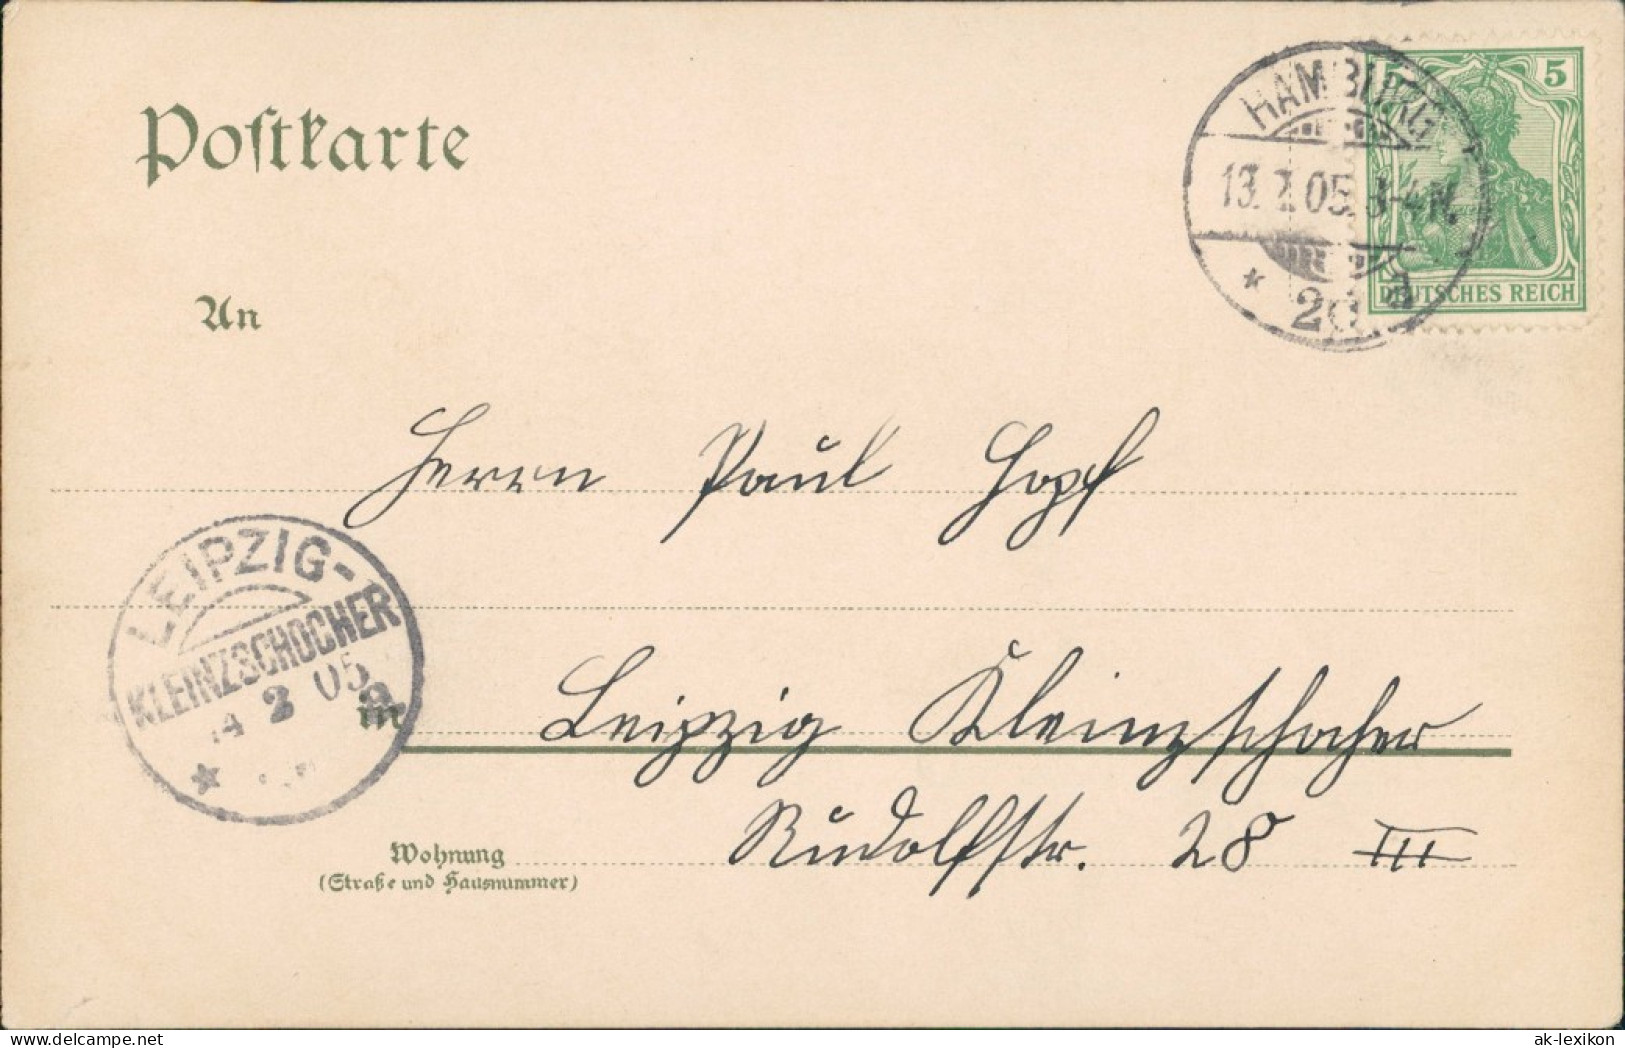 Postkarte
HAMBURG
13. 2. 05. 3-4 N.
* 20 a
5 5
DEUTSCHES REICH
An
Herrn Paul Hopf
LEIPZIG-
KLEINZSCHOCHER
14 2 05
* a
in Leipzig Kleinzschocher
Wohnung
(Straße und Hausnummer)
Rudolfstr. 28 III
ak-lexikon